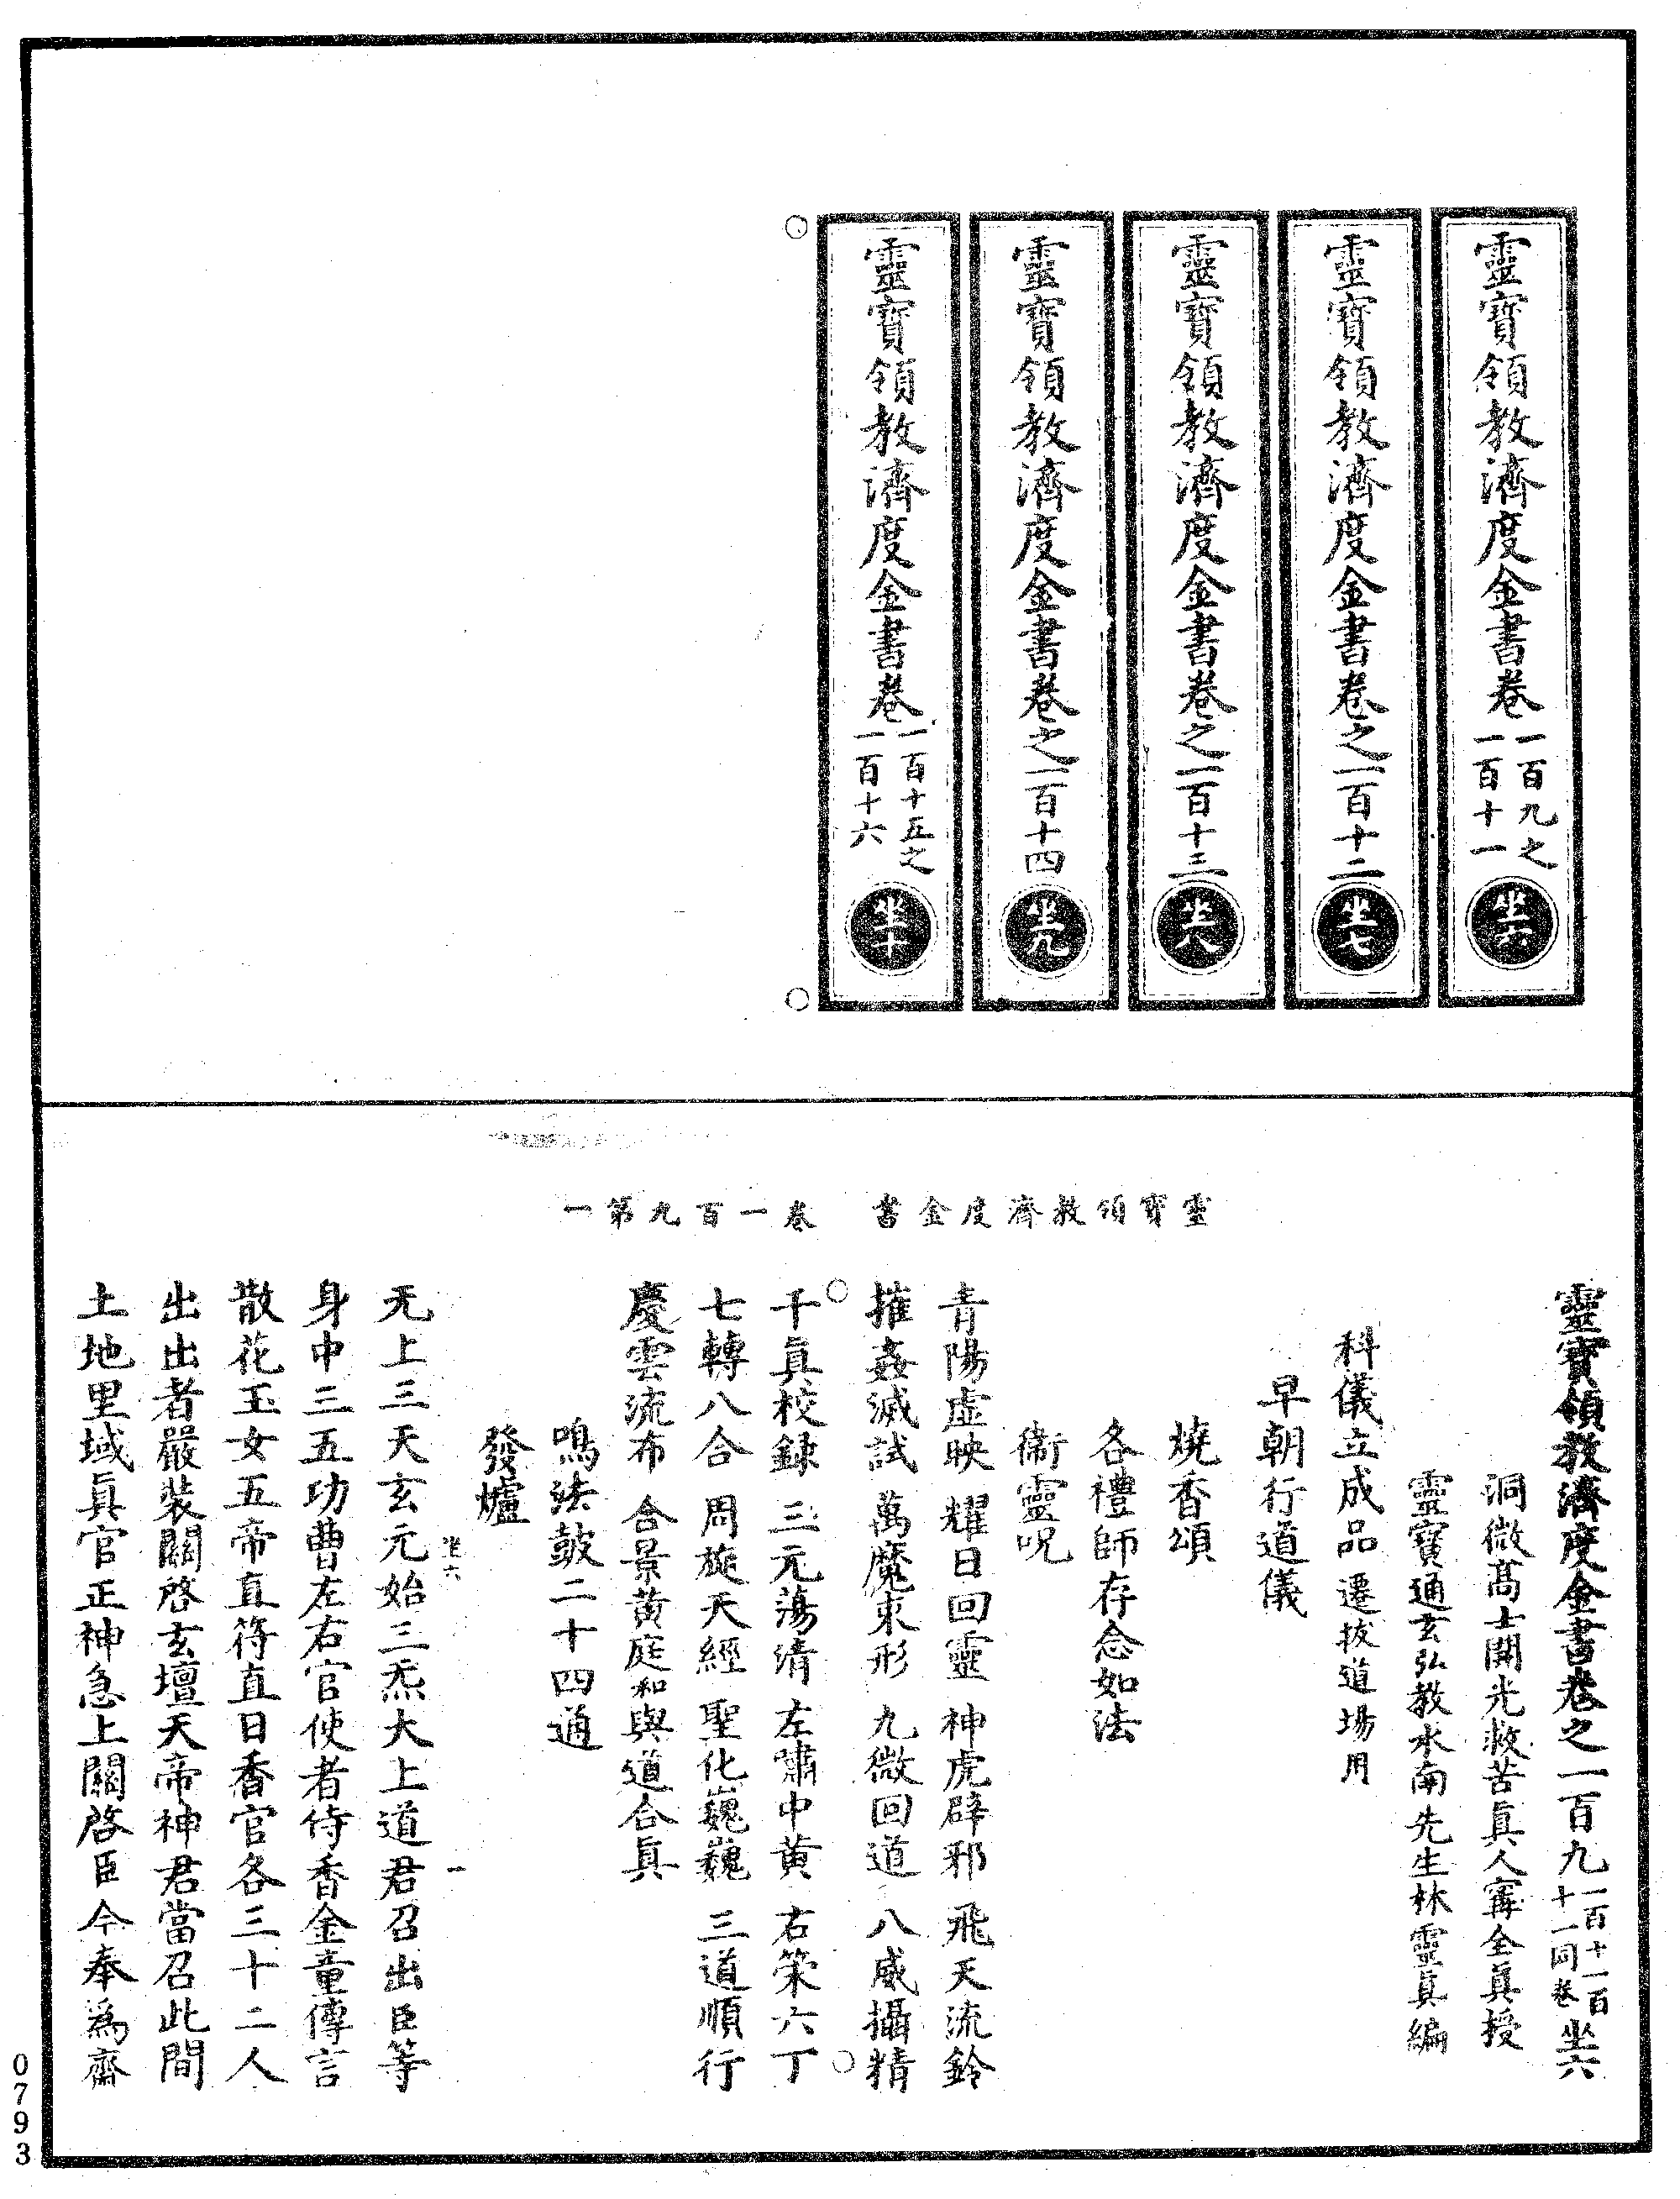 靈寶領教濟度金書卷一百九之一百十一
坐六
靈寶領教濟度金書卷之一百十二
坐七
靈寶領教濟度金書卷之一百十三
坐八
靈寶領教濟度金書卷之一百十四
坐九
靈寶領教濟度金書卷一百十五之一百十六
坐十
靈寶領教濟度金書　卷一百九第一
靈寶領教濟度金書卷之一百九一百十一百十一同卷坐六
洞微高士開光救苦眞人甯全眞授
靈寶通玄弘教水南先生林靈眞編
科儀立成品遷拔道場用
早朝行道儀
燒香頌
各禮師存念如法
衞靈呪
青陽虛映　耀日回靈　神虎辟邪　飛天流鈴
摧姦滅試　萬魔束形　九微回道　八威攝精
千眞校錄　三元蕩清　左嘯中黃　右策六丁
七轉八合　周旋天經　聖化巍巍　三道順行
慶雲流布　合景黃庭和與道合眞
鳴法鼓二十四通
發爐
坐六　一
无上三天玄元始三炁大上道君召出臣等
身中三五功曹左右官使者侍香金童傳言
散花玉女五帝直符直日香官各三十二人
出出者嚴裝關啓玄壇天帝神君當召此間
土地里域眞官正神急上關啓臣今奉爲齋
0793